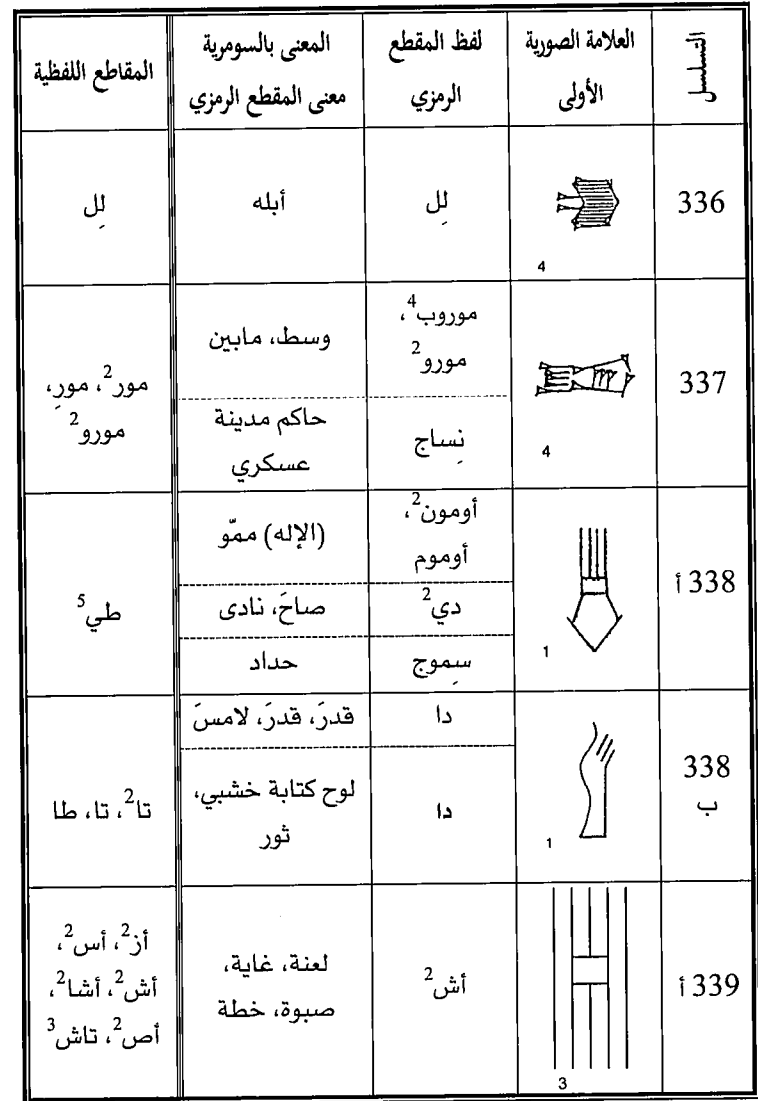 التسلسل
العلامة الصورية
الأولى
لفظ المقطع
الرمزي
المعنى بالسومرية
معنى المقطع الرمزي
المقاطع اللفظية
336
4
لِل
أبله
لِل
337
4
موروب⁴،
مورو²
وسط، مابين
نِساج
حاكم مدينة
عسكري
مور²، مورِ،
مورو²
338 أ
1
أومون²،
أوموم
(الإله) ممّو
دي²
صاحَ، نادى
سِموج
حداد
طي⁵
338
ب
1
دا
قدرَ، قدرَ، لامسَ
دا
لوح كتابة خشبي،
ثور
تا²، تا، طا
339 أ
3
أش²
لعنة، غاية،
صبوة، خطة
أز²، أس²،
أش²، أشا²،
أص²، تاش³